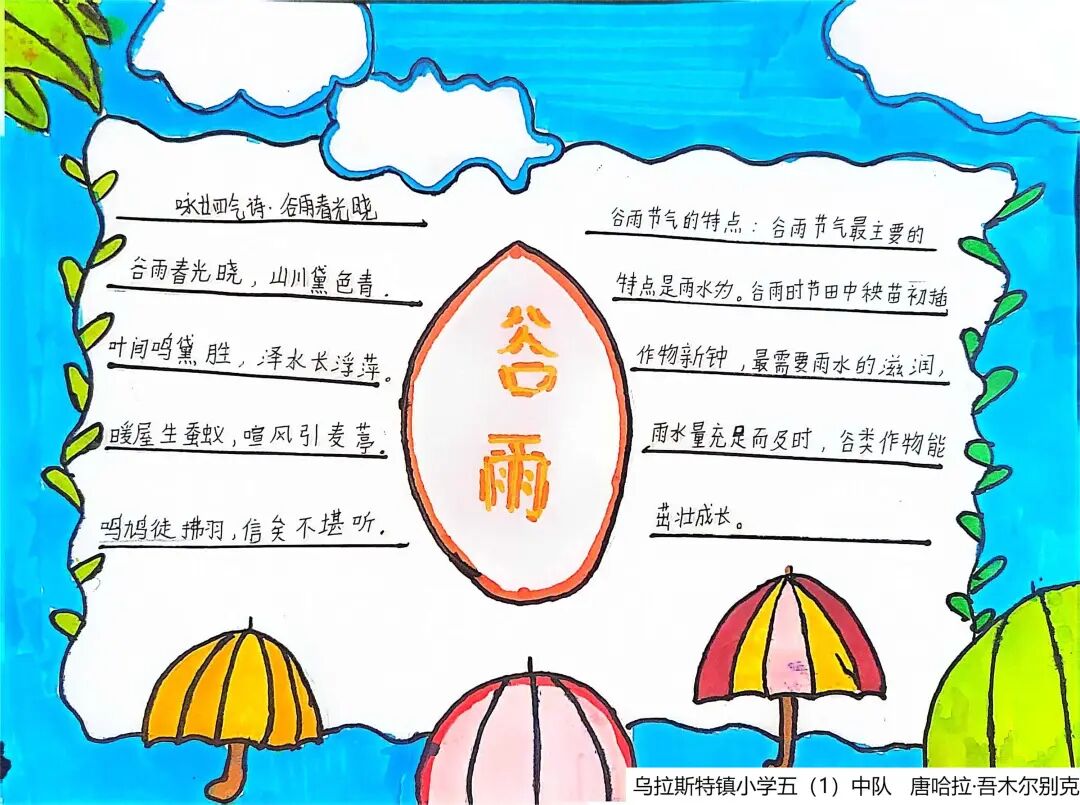 咏廿四气诗·谷雨春光晓
谷雨春光晓，山川黛色青.
叶间鸣黛胜，泽水长浮萍。
暖屋生蚕蚁，喧风引麦葶。
鸣鸠徒拂羽，信矣不堪听.
谷雨
谷雨节气的特点：谷雨节气最主要的
特点是雨水为。谷雨时节田中秧苗初插
作物新钟，最需要雨水的滋润，
雨水量充足而及时，谷类作物能
茁壮成长。
乌拉斯特镇小学五（1）中队 唐哈拉·吾木尔别克